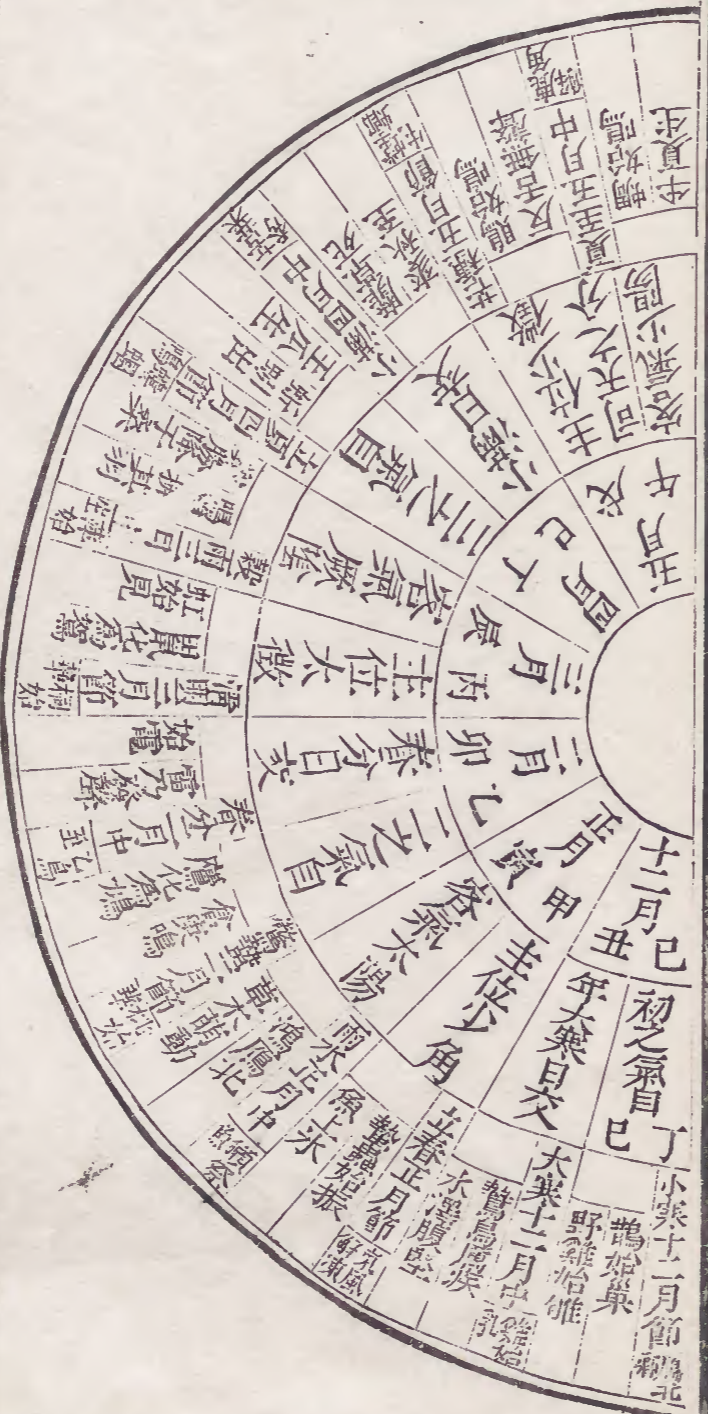 十二月己丑
正月甲寅
二月乙卯
三月丙辰
四月丁巳
五月戊午
初之氣自丁巳
年大寒日交
主位少角
客氣太陽
二之氣自
春分日戌
主位太徵
客氣厥陰
三之氣自
小滿日亥
主位少徵
司天之分
客氣少
小寒十二月節 鴈北鄉
鵲始巢
野雞始雊
大寒十二月中 雞始乳
鷙鳥厲疾
水澤腹堅
立春正月節 東風解凍
蟄蟲始振
魚上冰
雨水正月中 獺祭魚
鴻鴈北
草木萌動
驚蟄二月節 桃始華
倉庚鳴
鷹化為鳩
春分二月中 玄鳥至
雷乃發聲
始電
清明三月節 桐始華
田鼠化為鴽
虹始見
穀雨三月 萍始生
鳴鳩拂其羽
戴勝降于桑
立夏四月節 螻蟈鳴
蚯蚓出
王瓜生
小滿四月中 苦菜秀
靡草死
麥秋至
芒種五月節 螳螂生
鵙始鳴
反舌無聲
夏至五月中 鹿角解
蜩始鳴
半夏生